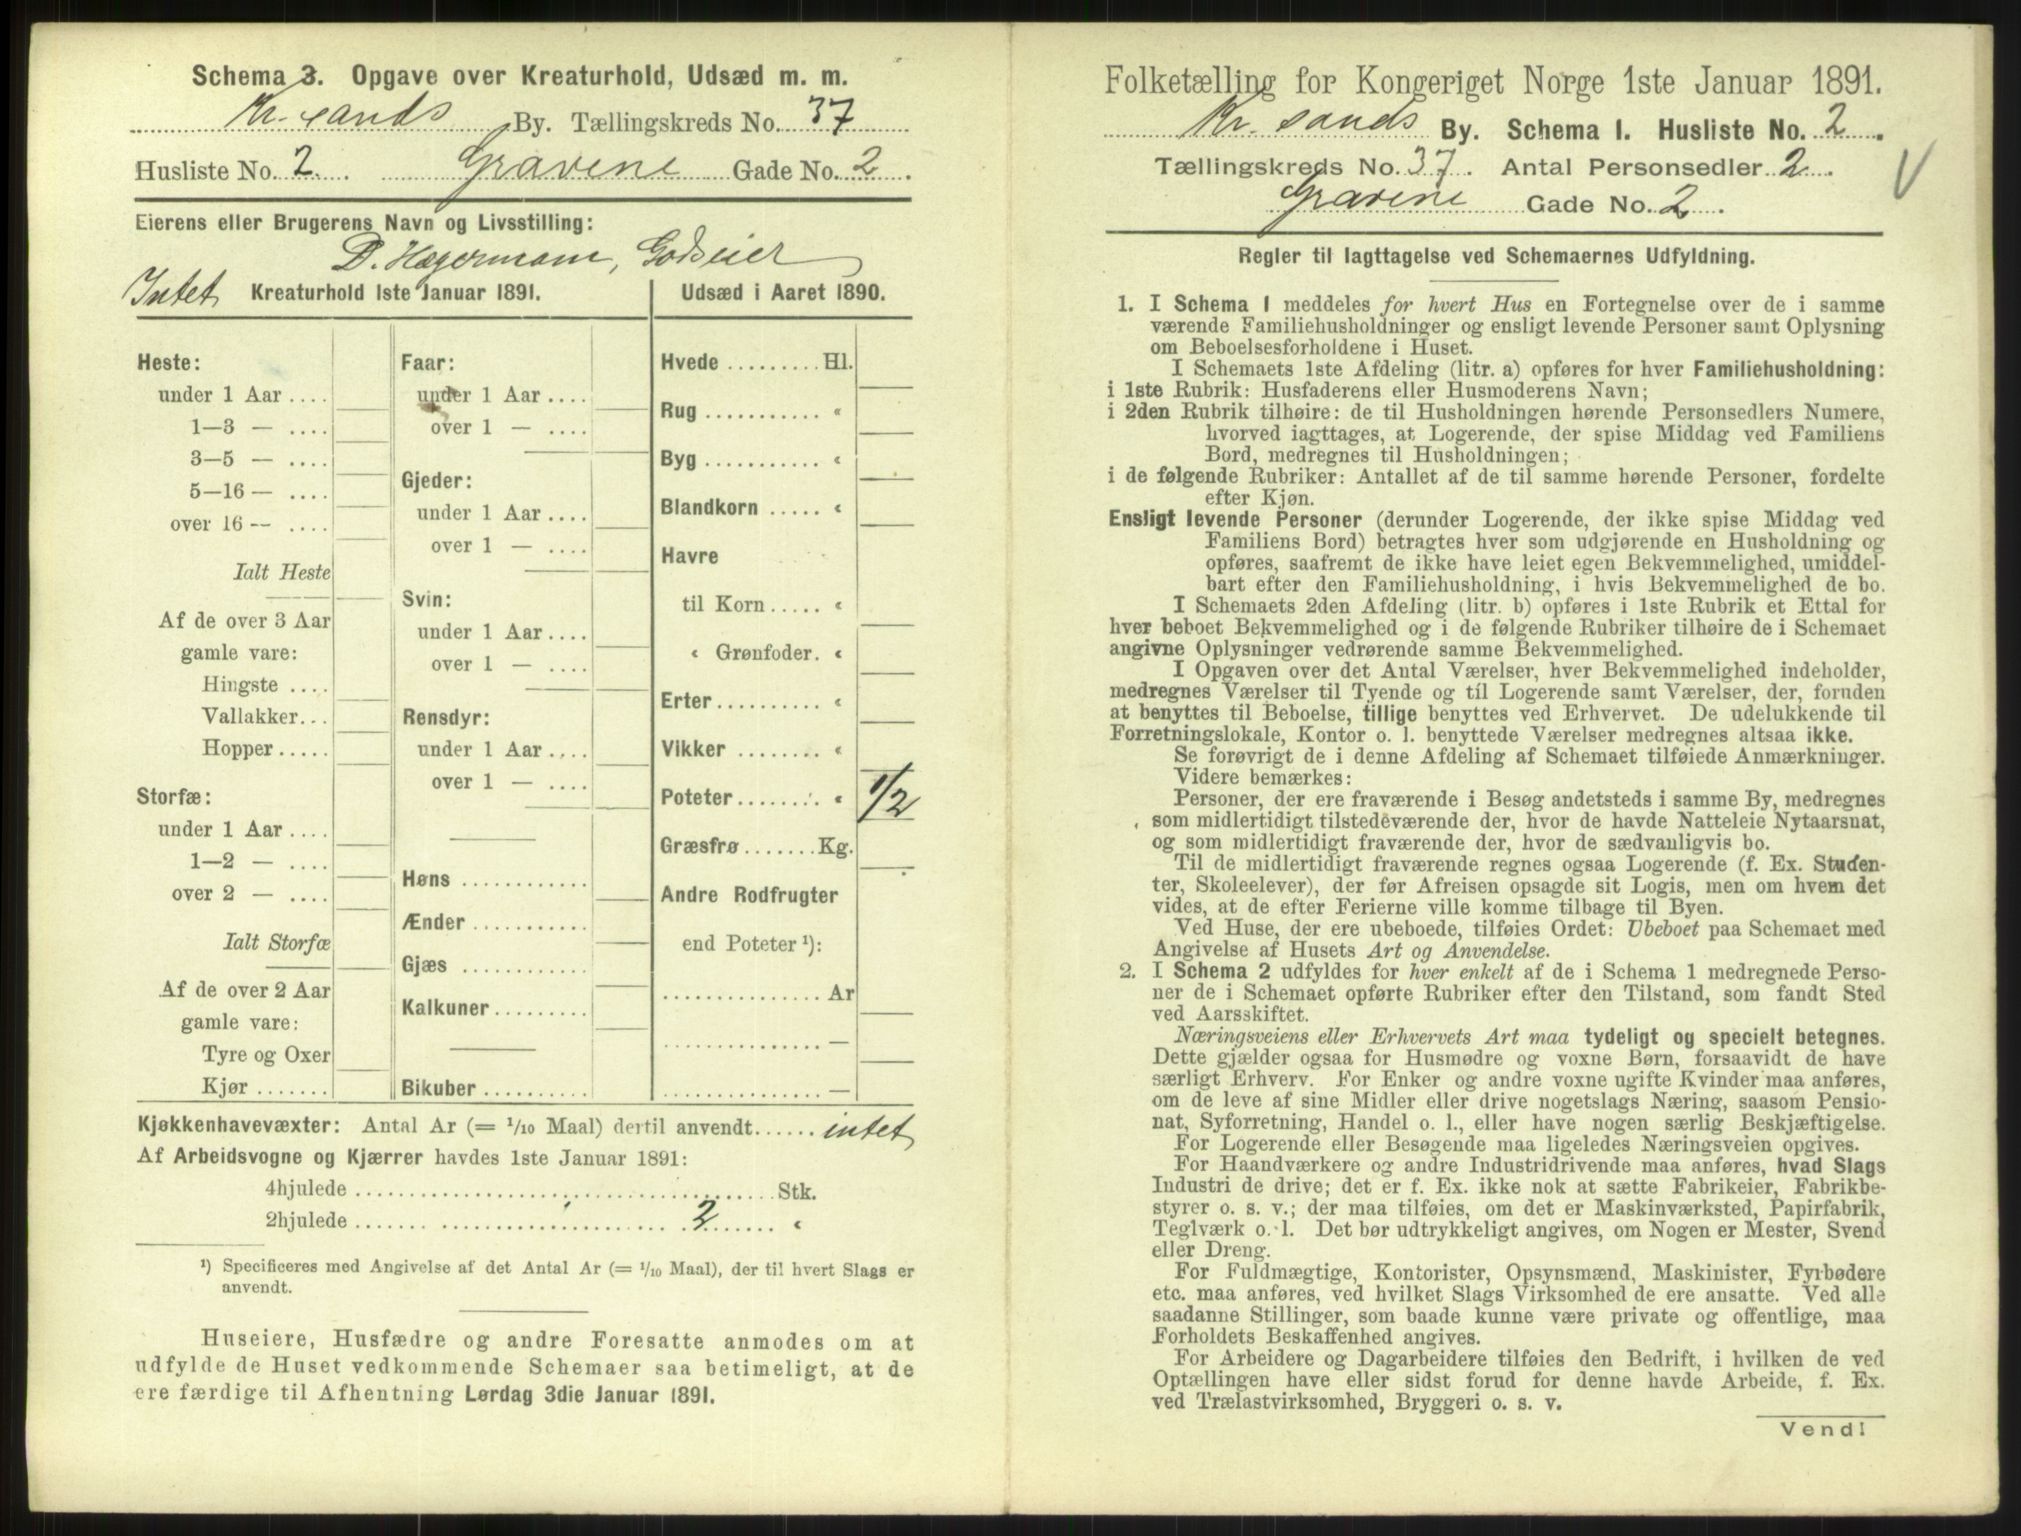 Schema 3. Opgave over Kreaturhold, Udsæd m. m.
Kr.sands By. Tællingskreds No. 37
Husliste No. 2. Gravene Gade No. 2.
Eierens eller Brugerens Navn og Livsstilling:
D. Hegermann, Godseier
Intet Kreaturhold 1ste Januar 1891.
Heste:
under 1 Aar ....
1—3 — ....
3—5 — ....
5—16 — ....
over 16 — ....
Ialt Heste
Af de over 3 Aar
gamle vare:
Hingste ....
Vallakker...
Hopper.....
Storfæ:
under 1 Aar ....
1—2 — ....
over 2 — ....
Ialt Storfæ
Af de over 2 Aar
gamle vare:
Tyre og Oxer
Kjør .......
Faar:
under 1 Aar ....
over 1 — ....
Gjeder:
under 1 Aar ....
over 1 — ....
Svin:
under 1 Aar ....
over 1 — ....
Rensdyr:
under 1 Aar ....
over 1 — ....
Høns ............
Ænder ...........
Gjæs ............
Kalkuner.........
Bikuber ..........
Udsæd i Aaret 1890.
Hvede ......... Hl.
Rug ........... «
Byg ........... «
Blandkorn ..... «
Havre
til Korn..... «
« Grønfoder. «
Erter.......... «
Vikker ........ «
Poteter........ « 1/2
Græsfrø ....... Kg.
Andre Rodfrugter
end Poteter ¹):
............... Ar
............... —
............... —
Kjøkkenhavevæxter: Antal Ar (= 1/10 Maal) dertil anvendt...... intet
Af Arbeidsvogne og Kjærrer havdes 1ste Januar 1891:
4hjulede ........................................ Stk.
2hjulede ....... ..................... 2 ....... «
¹) Specificeres med Angivelse af det Antal Ar (= 1/10 Maal), der til hvert Slags er
anvendt.
Huseiere, Husfædre og andre Foresatte anmodes om at
udfylde de Huset vedkommende Schemaer saa betimeligt, at de
ere færdige til Afhentning Lørdag 3die Januar 1891.
Folketælling for Kongeriget Norge 1ste Januar 1891.
Kr.sands By. Schema I. Husliste No. 2.
Tællingskreds No. 37. Antal Personsedler 2.
Gravene Gade No. 2.
Regler til Iagttagelse ved Schemaernes Udfyldning.
1. I Schema 1 meddeles for hvert Hus en Fortegnelse over de i samme
værende Familiehusholdninger og ensligt levende Personer samt Oplysning
om Beboelsesforholdene i Huset.
I Schemaets 1ste Afdeling (litr. a) opføres for hver Familiehusholdning:
i 1ste Rubrik: Husfaderens eller Husmoderens Navn;
i 2den Rubrik tilhøire: de til Husholdningen hørende Personsedlers Numere,
hvorved iagttages, at Logerende, der spise Middag ved Familiens
Bord, medregnes til Husholdningen;
i de følgende Rubriker: Antallet af de til samme hørende Personer, fordelte
efter Kjøn.
Ensligt levende Personer (derunder Logerende, der ikke spise Middag ved
Familiens Bord) betragtes hver som udgjørende en Husholdning og
opføres, saafremt de ikke have leiet egen Bekvemmelighed, umiddel-
bart efter den Familiehusholdning, i hvis Bekvemmelighed de bo.
I Schemaets 2den Afdeling (litr. b) opføres i 1ste Rubrik et Ettal for
hver beboet Bekvemmelighed og i de følgende Rubriker tilhøire de i Schemaet
angivne Oplysninger vedrørende samme Bekvemmelighed.
I Opgaven over det Antal Værelser, hver Bekvemmelighed indeholder,
medregnes Værelser til Tyende og til Logerende samt Værelser, der, foruden
at benyttes til Beboelse, tillige benyttes ved Erhvervet. De udelukkende til
Forretningslokale, Kontor o. l. benyttede Værelser medregnes altsaa ikke.
Se forøvrigt de i denne Afdeling af Schemaet tilføiede Anmærkninger.
Videre bemærkes:
Personer, der ere fraværende i Besøg andetsteds i samme By, medregnes
som midlertidigt tilstedeværende der, hvor de havde Natteleie Nytaarsnat,
og som midlertidigt fraværende der, hvor de sædvanligvis bo.
Til de midlertidigt fraværende regnes ogsaa Logerende (f. Ex. Studen-
ter, Skoleelever), der før Afreisen opsagde sit Logis, men om hvem det
vides, at de efter Ferierne ville komme tilbage til Byen.
Ved Huse, der ere ubeboede, tilføies Ordet: Ubeboet paa Schemaet med
Angivelse af Husets Art og Anvendelse.
2. I Schema 2 udfyldes for hver enkelt af de i Schema 1 medregnede Perso-
ner de i Schemaet opførte Rubriker efter den Tilstand, som fandt Sted
ved Aarsskiftet.
Næringsveiens eller Erhvervets Art maa tydeligt og specielt betegnes.
Dette gjælder ogsaa for Husmødre og voxne Børn, forsaavidt de have
særligt Erhverv. For Enker og andre voxne ugifte Kvinder maa anføres,
om de leve af sine Midler eller drive nogetslags Næring, saasom Pensio-
nat, Syforretning, Handel o. l., eller have nogen særlig Beskjæftigelse.
For Logerende eller Besøgende maa ligeledes Næringsveien opgives.
For Haandværkere og andre Industridrivende maa anføres, hvad Slags
Industri de drive; det er f. Ex. ikke nok at sætte Fabrikeier, Fabrikbe-
styrer o. s. v.; der maa tilføies, om det er Maskinværksted, Papirfabrik,
Teglværk o. l. Det bør udtrykkeligt angives, om Nogen er Mester, Svend
eller Dreng.
For Fuldmægtige, Kontorister, Opsynsmænd, Maskinister, Fyrbødere
etc. maa anføres, ved hvilket Slags Virksomhed de ere ansatte. Ved alle
saadanne Stillinger, som baade kunne være private og offentlige, maa
Forholdets Beskaffenhed angives.
For Arbeidere og Dagarbeidere tilføies den Bedrift, i hvilken de ved
Optællingen have eller sidst forud for denne havde Arbeide, f. Ex.
ved Trælastvirksomhed, Bryggeri o. s. v.
Vend!